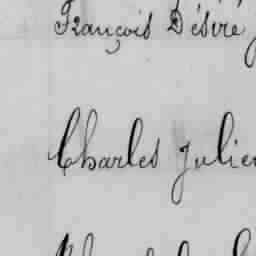 François Désiré
Charles Julien